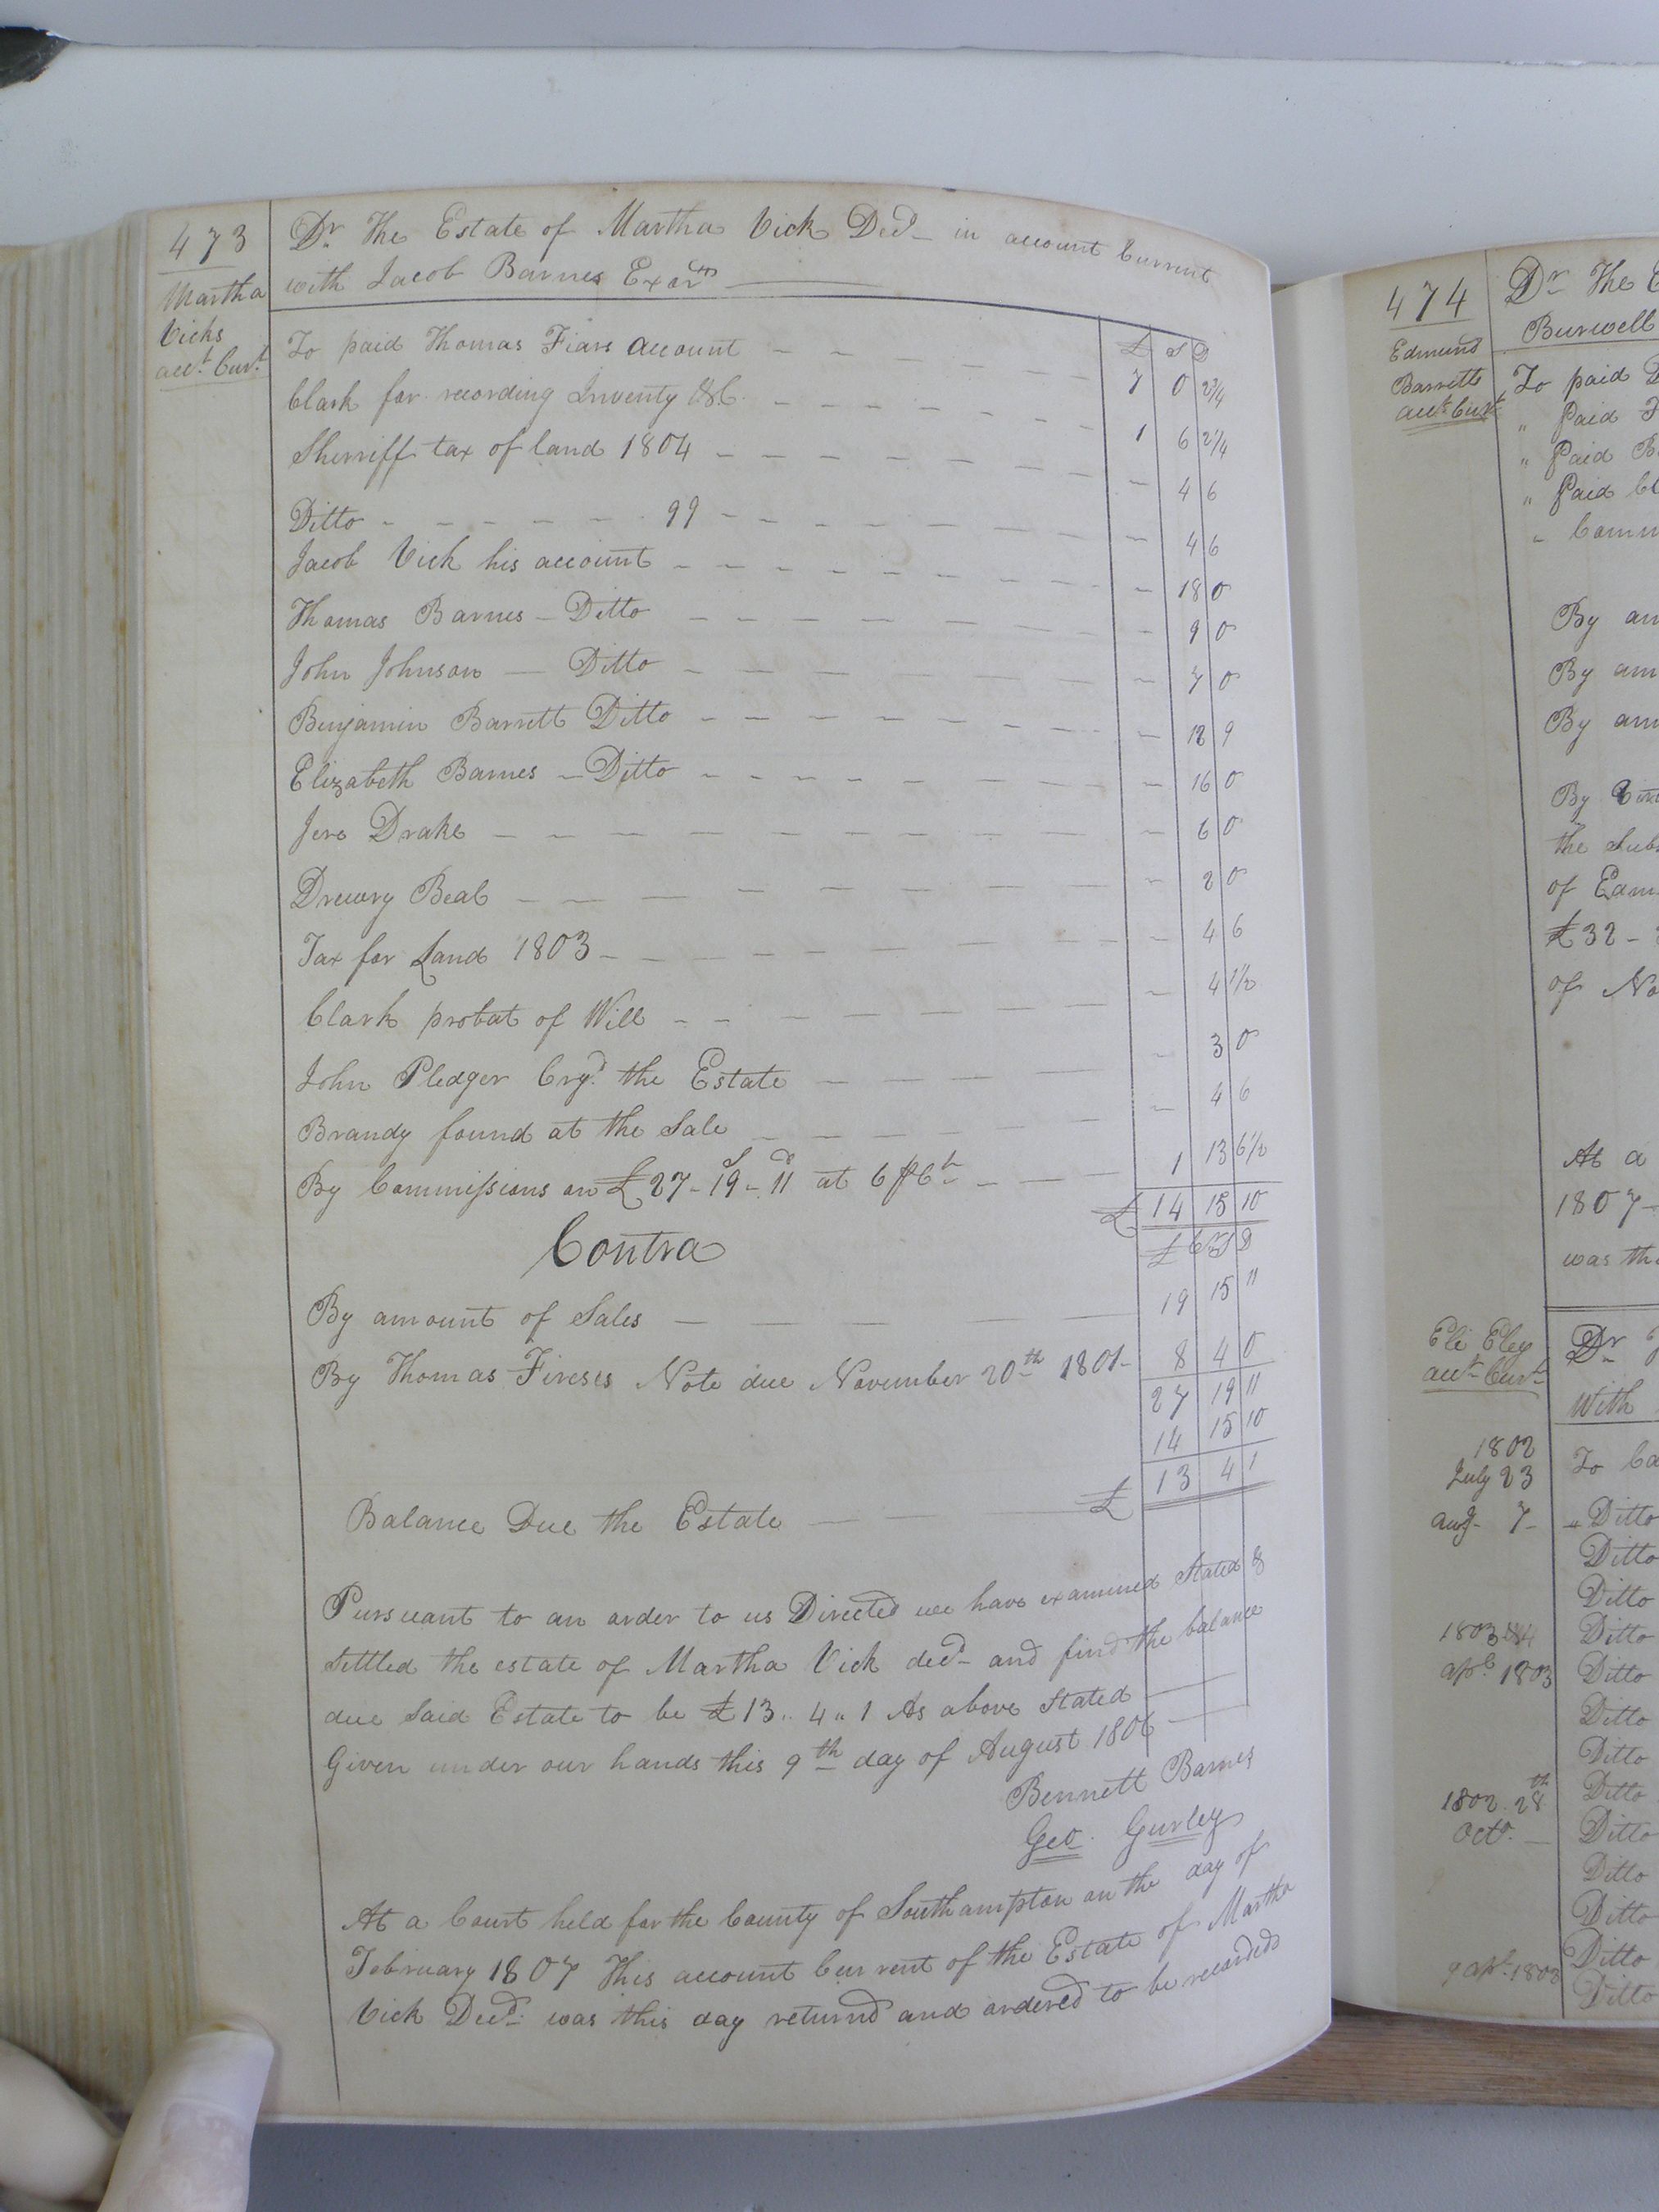 473
Martha
Vicks
acct. Curt.
Dr. The Estate of Martha Vick Decd in account Current
with Jacob Barnes Exor
£ S D
To paid Thomas Fiars account 7 0 2 3/4
Clark for recording Inventy &C. 1 6 2 1/4
Sherriff tax of land 1804 4 6
Ditto 99 4 6
Jacob Vick his account 18 0
Thomas Barnes Ditto 9 0
John Johnson Ditto 7 0
Benjamin Barrett Ditto 12 9
Elizabeth Barnes Ditto 16 0
Jere Drake 6 0
Drewry Beal 2 0
Tax for Land 1803 4 6
Clark probat of Will 4 1/2
John Pledger Cryd. the Estate 3 0
Brandy found at the Sale 4 6
By Commissions on £27-19-11 at 6 pCt 1 13 6 1/2
£ 14 15 10
Contra
£ Cr S D
By amount of Sales 19 15 11
By Thomas Fireses Note due November 20th 1801 8 4 0
27 19 11
14 15 10
Balance Due the Estate £ 13 4 1
Pursuant to an order to us Directed we have examined Stated &
Settled the estate of Martha Vick decd and find the balance
due Said Estate to be £13 " 4 " 1 As above Stated
Given under our hands this 9th day of August 1806
Bennett Barnes
Geo. Gurley
At a Court held for the County of Southampton on the day of
February 1807 This account Current of the Estate of Martha
Vick Decd. was this day returnd and ordered to be recorded
474
Edmund
Barretts
acct Curt
Dr The
Burwell
To paid
" Paid
" Paid
" Paid
"
By
By
By
By
the
of
£32 -
of
At a
1807
was
Eli Eley
acct Curt
Dr
With
1802
July 23 To
Aug 7 " Ditto
Ditto
Ditto
1803 Ditto
apl 1803 Ditto
Ditto
Ditto
1802 28th Ditto
Octo. Ditto
Ditto
Ditto
9 apl 1803 Ditto
Ditto